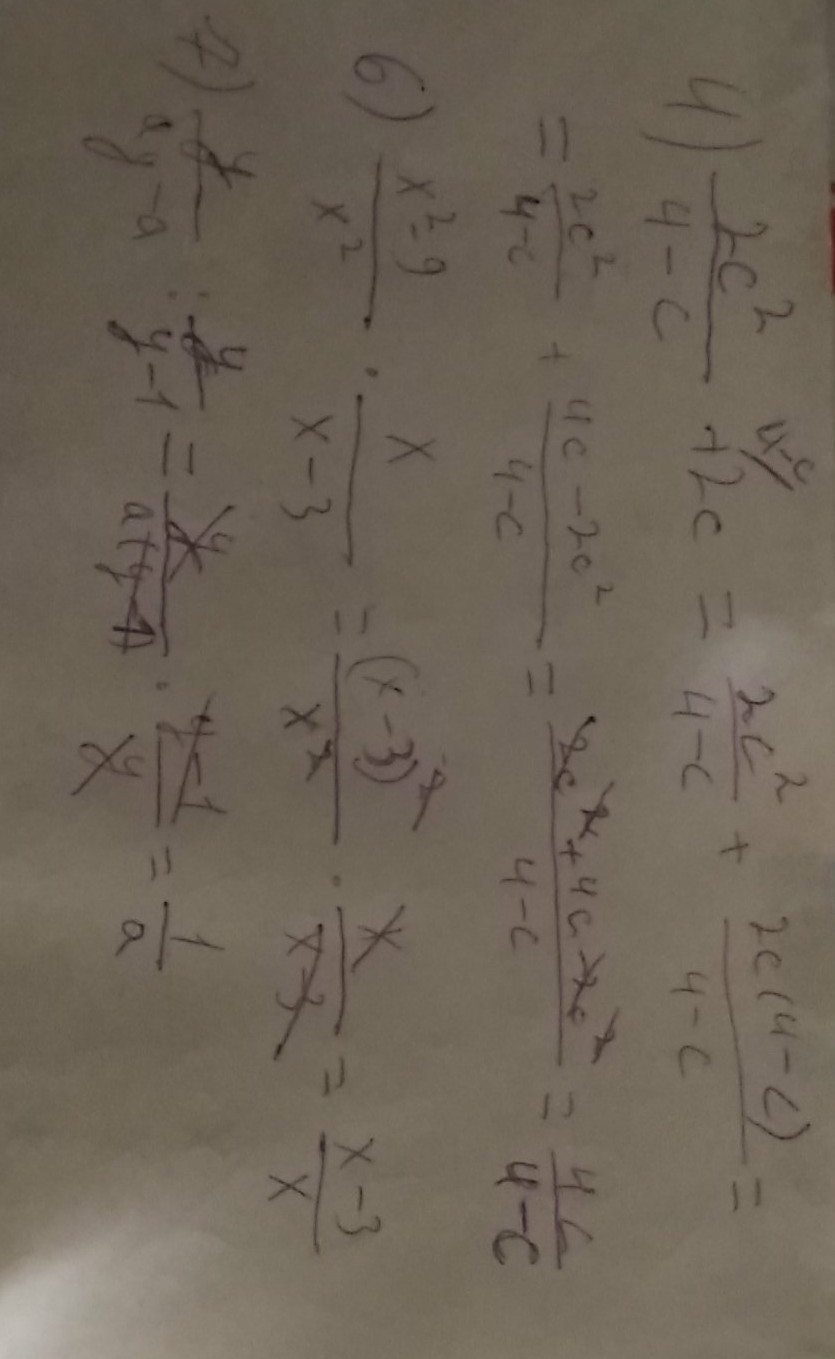 4) 2c²/(4-c) + 2c^(4-c/ = 2c²/(4-c) + 2c(4-c)/(4-c) =
= 2c²/(4-c) + (4c-2c²)/(4-c) = (2c²+4c-2c²)/(4-c) = 4c/(4-c)
6) (x²-9)/x² · x/(x-3) = (x-3)²/x² · x/(x-3) = (x-3)/x
7) y/(ay-a) : y/(y-1) = y/(a+y-1) · (y-1)/y = 1/a